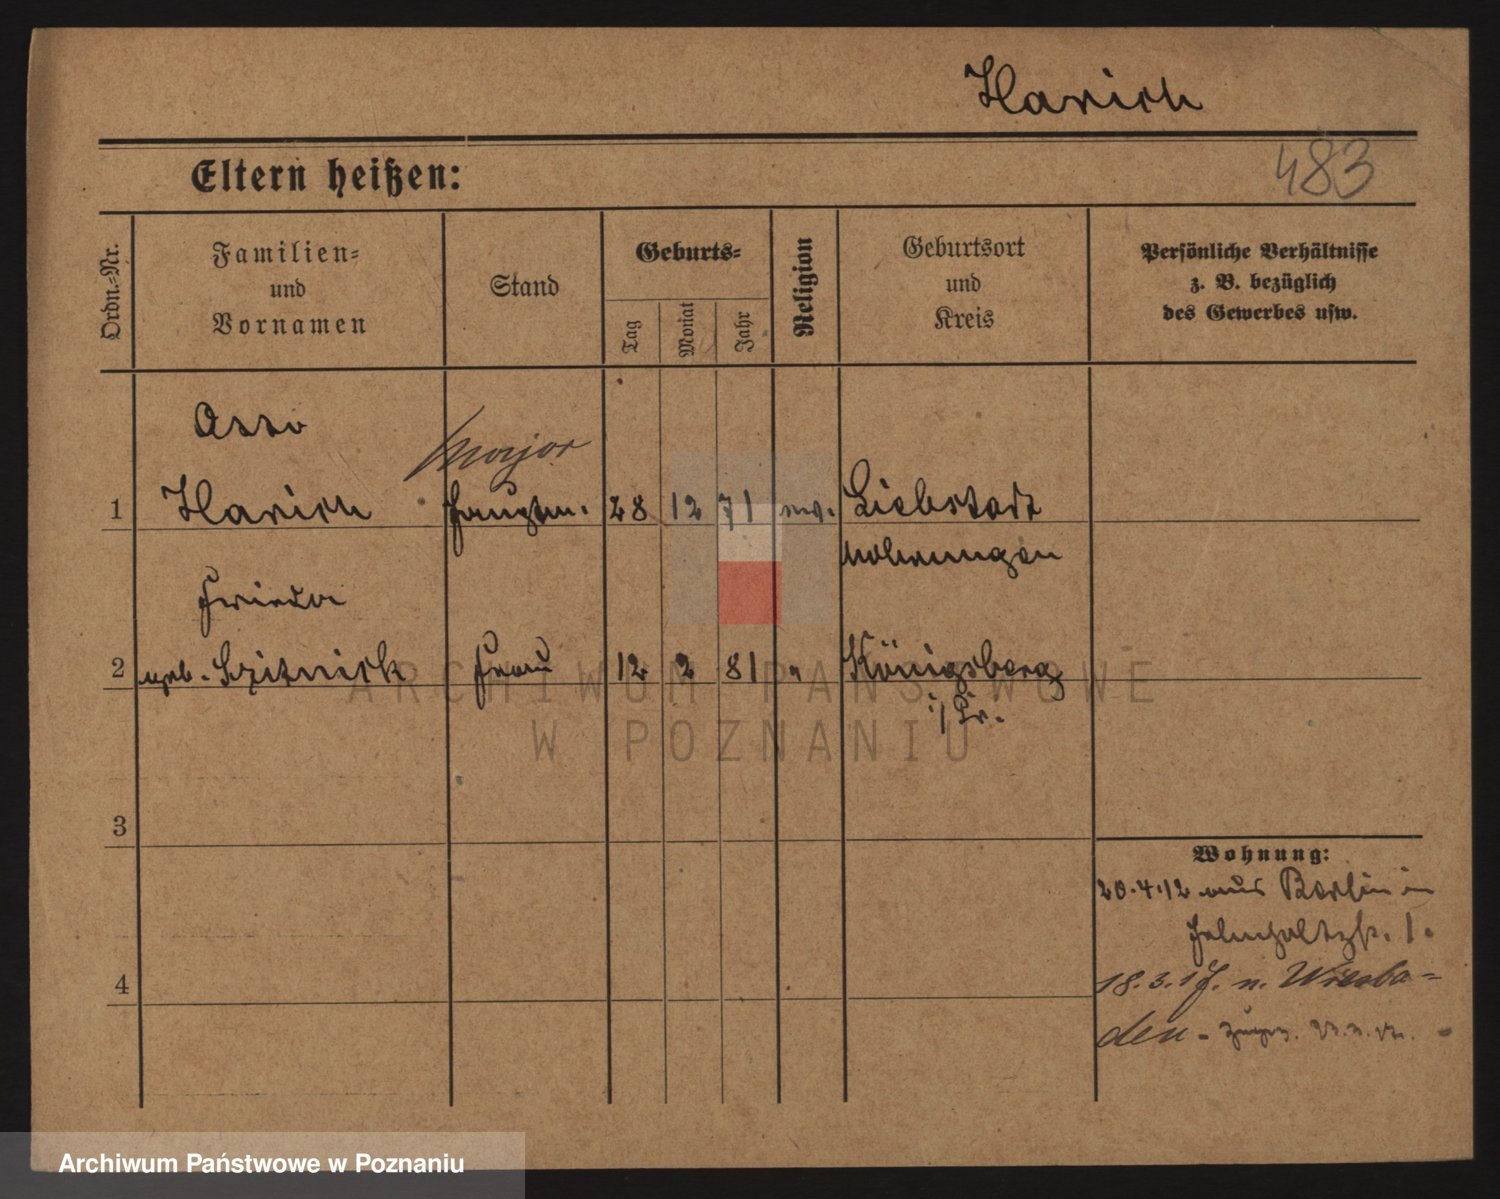 Harich
Eltern heißen:
483
Ordn.-Nr.
Familien-
und
Vornamen
Stand
Geburts-
Tag
Monat
Jahr
Religion
Geburtsort
und
Kreis
Persönliche Verhältnisse
z. B. bezüglich
des Gewerbes usw.
Otto
Major
1 Harich Hauptm. 28 12 71 ev. Liebstadt
Mohrungen
Frieda
2 geb. Szitnick Frau 12 2 81 " Königsberg
i/Pr.
3
Wohnung:
20.4.12 aus Berlin in
Helmholtzstr. 1.
4
18.3.17. n. Wiesba-
den -
ARCHIWUM PAŃSTWOWE
W POZNANIU
Archiwum Państwowe w Poznaniu